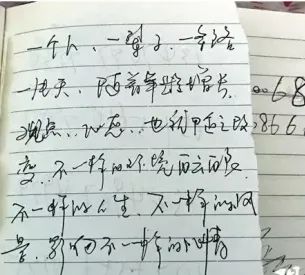 一个人、一辈子、一条路
一片天、随着年龄增长
观点、心态、也和里之改
变、不一样的环境
不一样的人生、不一样的风
景、影响不一样的心情
68
86.6